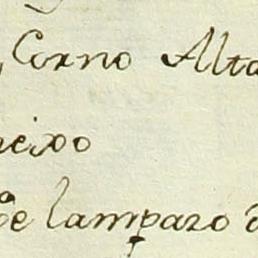 Corno Alta
neixo
de lamparo d